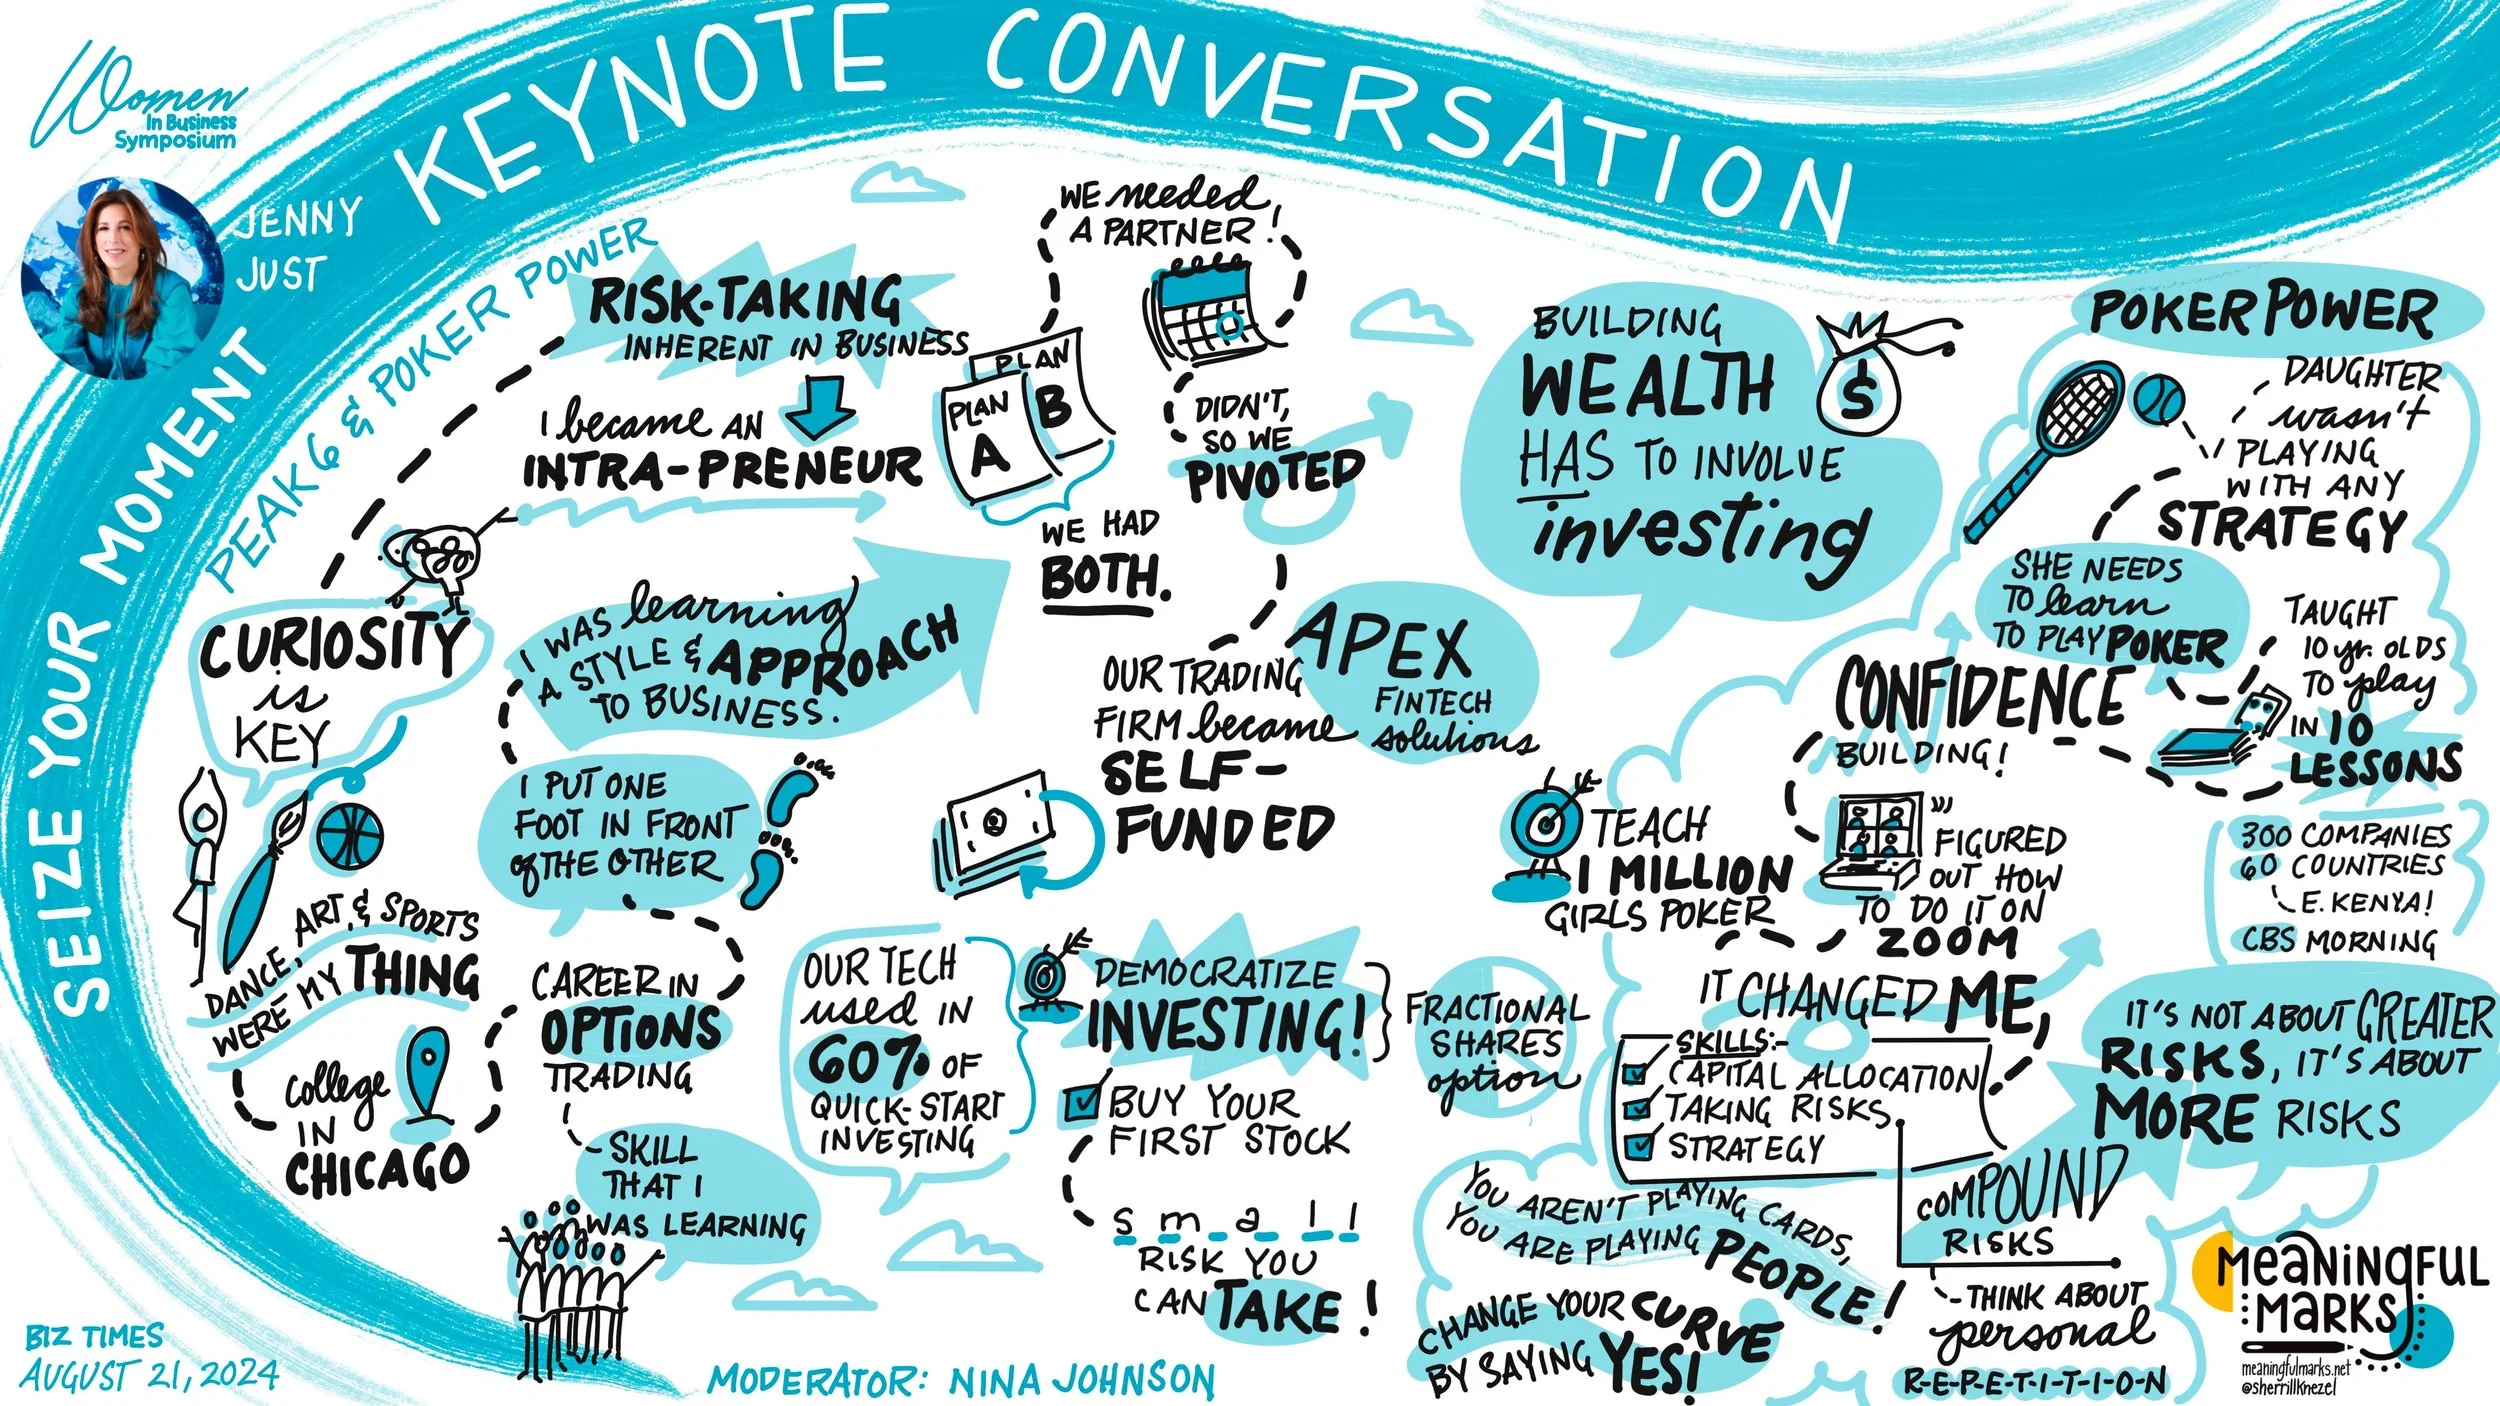 Women
In Business
Symposium
KEYNOTE CONVERSATION
JENNY
JUST
SEIZE YOUR MOMENT
PEAK6 & POKER POWER
CURIOSITY
is
KEY
DANCE, ART, & SPORTS
WERE MY THING
college
IN
CHICAGO
RISK-TAKING
INHERENT IN BUSINESS
I became AN
INTRA-PRENEUR
I WAS learning
A STYLE & APPROACH
TO BUSINESS.
I PUT ONE
FOOT IN FRONT
of THE OTHER
CAREER IN
OPTIONS
TRADING
SKILL
THAT I
WAS LEARNING
WE needed
A PARTNER!
PLAN
A
PLAN
B
WE HAD
BOTH.
DIDN'T,
SO WE
PIVOTED
APEX
FINTECH
solutions
OUR TRADING
FIRM became
SELF-
FUNDED
OUR TECH
used IN
60% OF
QUICK-START
INVESTING
DEMOCRATIZE
INVESTING!
BUY YOUR
FIRST STOCK
FRACTIONAL
SHARES
option
small
RISK YOU
CAN TAKE!
BUILDING
WEALTH
HAS TO INVOLVE
investing
$
POKER POWER
DAUGHTER
wasn't
PLAYING
WITH ANY
STRATEGY
SHE NEEDS
TO learn
TO PLAY POKER
TAUGHT
10 yr. OLDS
TO play
IN 10
LESSONS
CONFIDENCE
BUILDING!
FIGURED
OUT HOW
TO DO IT ON
ZOOM
TEACH
1 MILLION
GIRLS POKER
300 COMPANIES
60 COUNTRIES
E. KENYA!
CBS MORNING
IT CHANGED ME,
SKILLS:-
CAPITAL ALLOCATION
TAKING RISKS
STRATEGY
IT'S NOT ABOUT GREATER
RISKS, IT'S ABOUT
MORE RISKS
COMPOUND
RISKS
- THINK ABOUT
personal
R-E-P-E-T-I-T-I-O-N
YOU AREN'T PLAYING CARDS,
YOU ARE PLAYING PEOPLE!
CHANGE YOUR CURVE
BY SAYING YES!
BIZ TIMES
AUGUST 21, 2024
MODERATOR: NINA JOHNSON
MEANINGFUL
MARKS
meaningfulmarks.net
@sherrillknezel